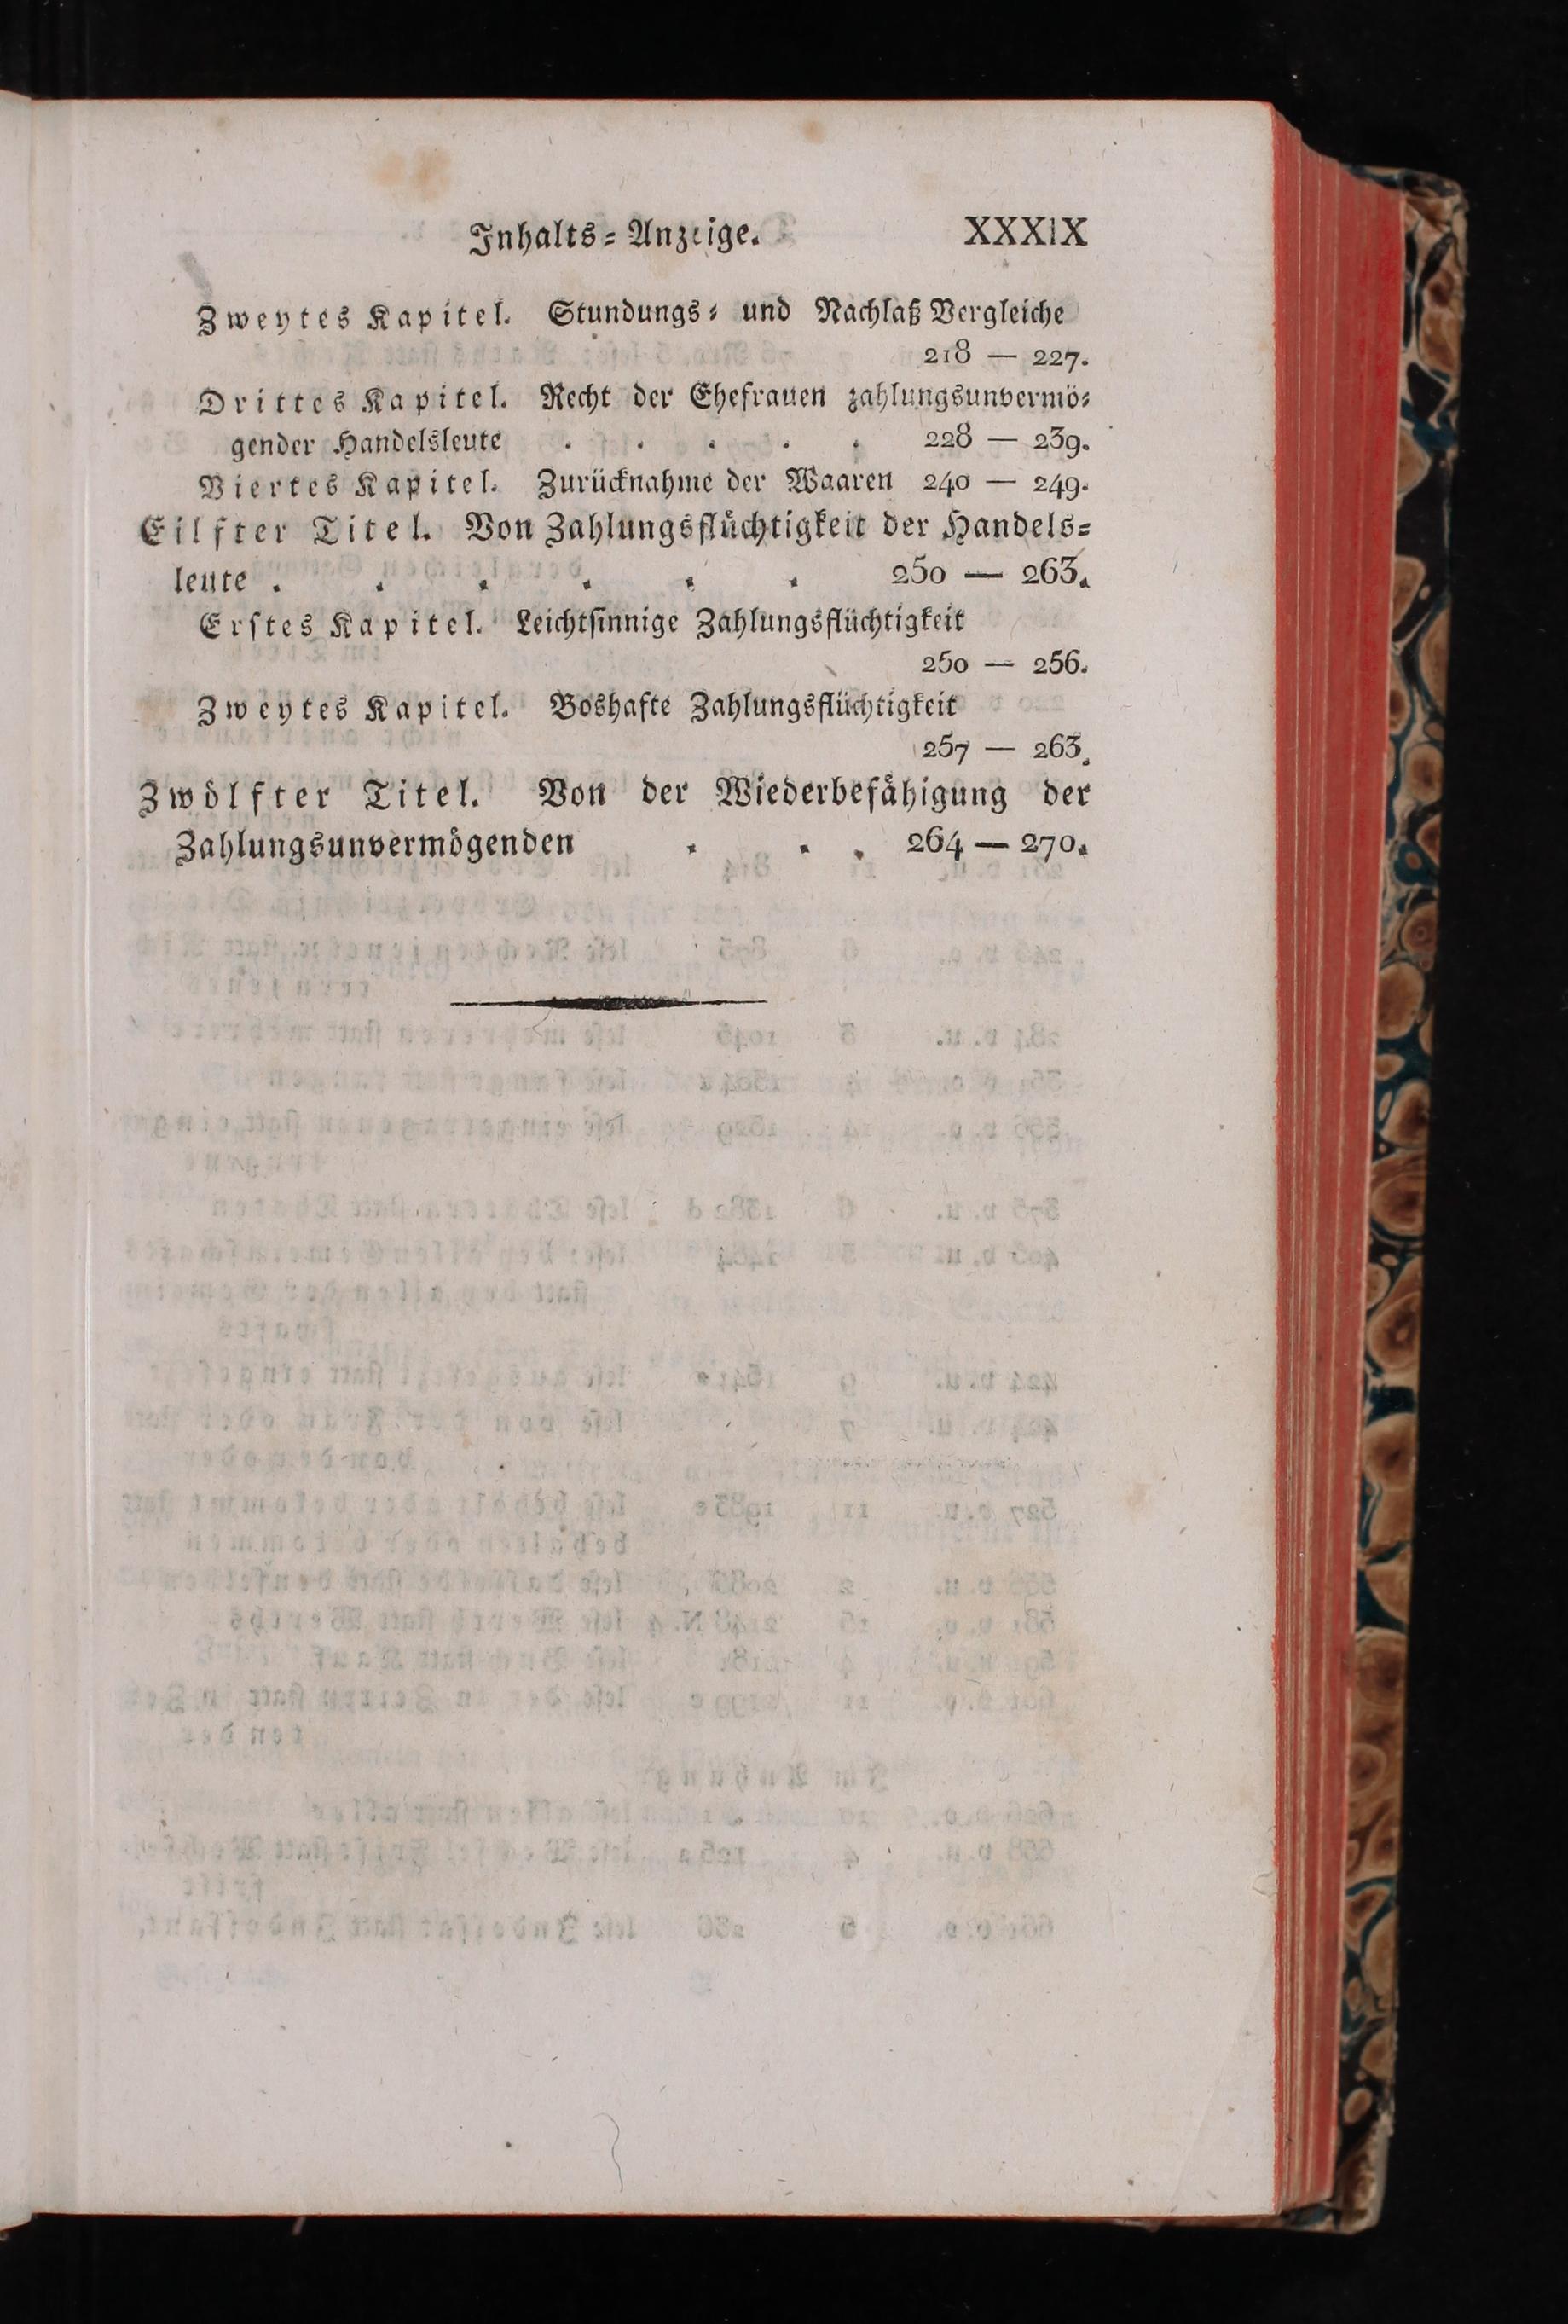 Inhalts-Anzeige. XXXIX
Zweytes Kapitel. Stundungs- und Nachlaß Vergleiche
218 — 227.
Drittes Kapitel. Recht der Ehefrauen zahlungsunvermö-
gender Handelsleute . . . . . 228 — 239.
Viertes Kapitel. Zurücknahme der Waaren 240 — 249.
Eilfter Titel. Von Zahlungsflüchtigkeit der Handels-
leute . . . . . . 250 — 263.
Erstes Kapitel. Leichtsinnige Zahlungsflüchtigkeit
250 — 256.
Zweytes Kapitel. Boshafte Zahlungsflüchtigkeit
257 — 263.
Zwölfter Titel. Von der Wiederbefähigung der
Zahlungsunvermögenden . . . 264 — 270.